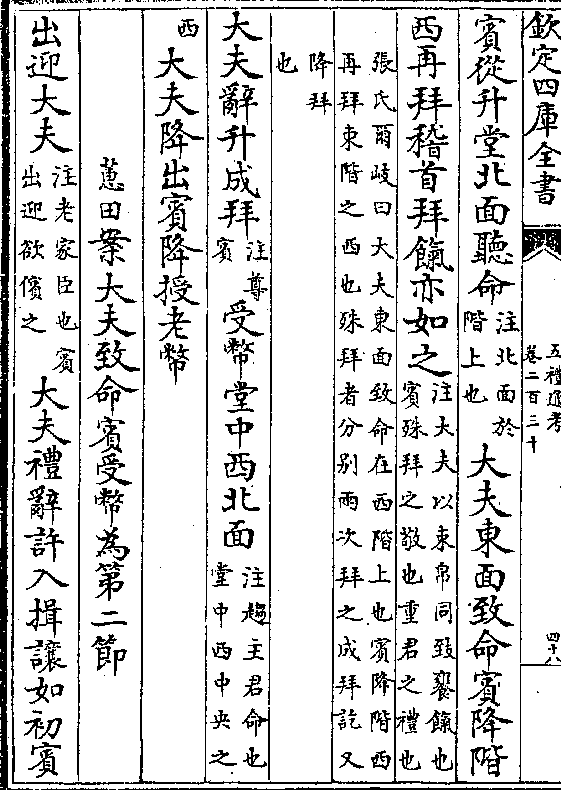 欽定四庫全書
五禮通考
卷二百三十
四十八
賓從升堂北面聽命注北面於階上也大夫東面致命賓降階
西再拜稽首拜餼亦如之注大夫以束帛同致饔餼也賓殊拜之敬也重君之禮也
張氏爾岐曰大夫東面致命在西階上也賓降階西再拜東階之西也殊拜者分别兩次拜之成拜訖又
降拜也
大夫辭升成拜注尊賓受幣堂中西北面注趨主君命也堂中西中央之
西大夫降出賓降授老幣
蕙田案大夫致命賓受幣為第二節
出迎大夫注老家臣也賓出迎欲儐之大夫禮辭許入揖讓如初賓